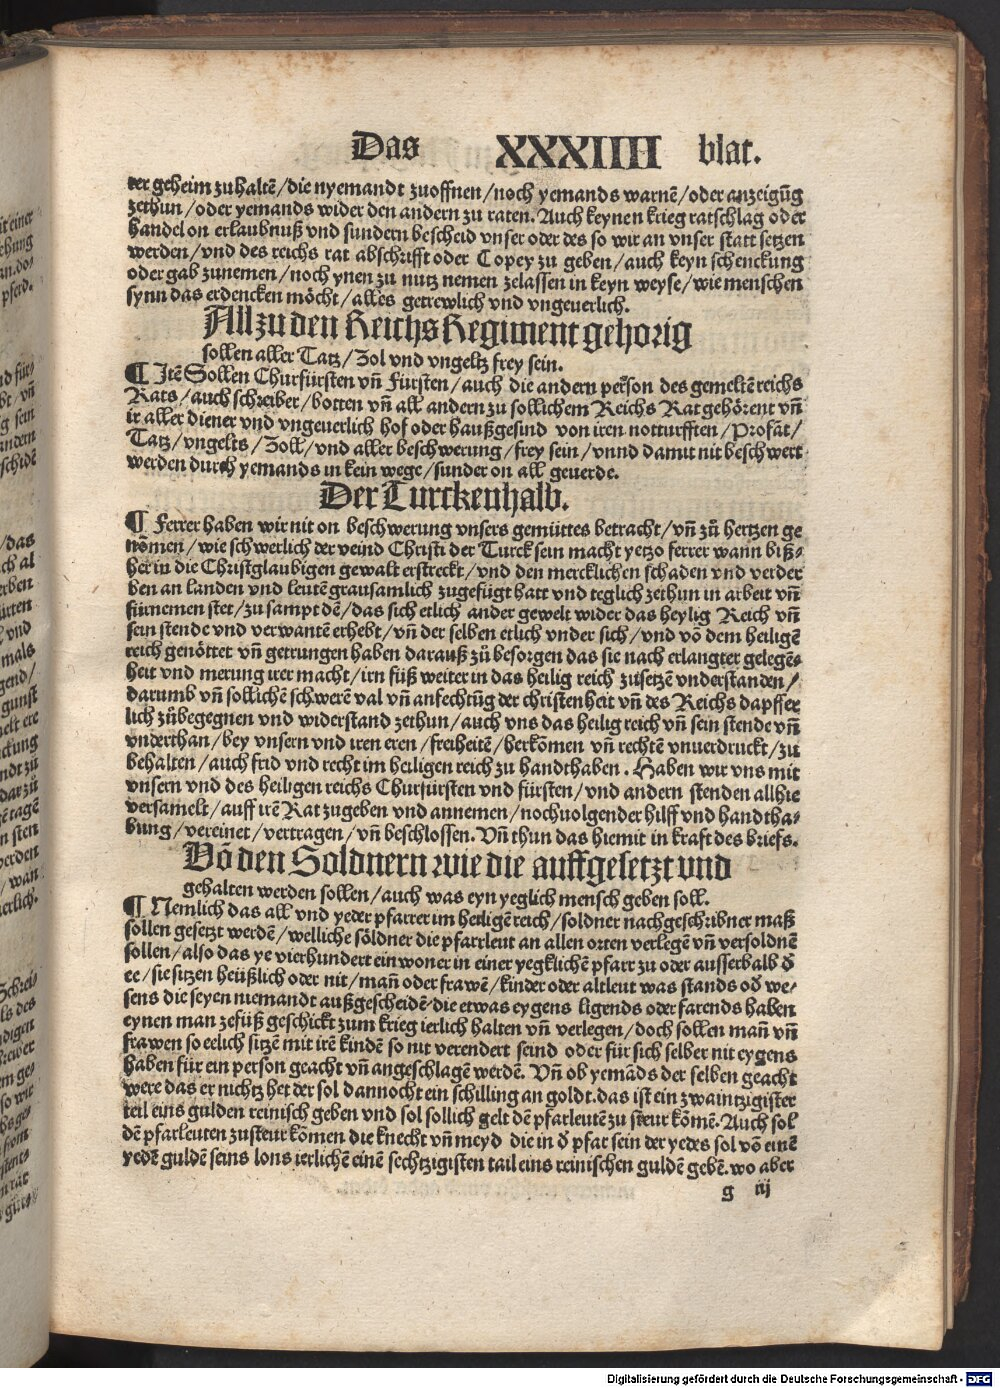 Das XXXIIII blat.
ter geheim zuhaltē/die nyemandt zuoffnen/noch yemands warnē/oder anzeigūg
zethun/oder yemands wider den andern zu raten. Auch keynen krieg ratschlag oder
handel on erlaubnuß vnd sundern bescheid vnser oder des so wir an vnser statt setzen
werden/vnd des reichs rat abschrifft oder Copey zu geben/auch keyn schenckung
oder gab zunemen/noch ynen zu nutz nemen zelassen in keyn weyse/wie menschen
synn das erdencken möcht/alles getrewlich vnd vngeuerlich.
All zu den Reichs Regiment gehorig
sollen aller Tatz/Zol vnd vngeltz frey sein.
¶ Itē Sollen Churfürsten vñ Fürsten/auch die andern person des gemeltē reichs
Rats/auch schreiber/botten vñ all andern zu sollichem Reichs Rat gehörent vñ
ir aller diener vnd vngeuerlich hof oder haußgesind von iren notturfften/Profāt/
Tatz/vngelts/Zoll/vnd aller beschwerung/frey sein/vnnd damit nit beschwert
werden durch yemands in kein wege/sunder on all geuerde.
Der Turcken halb.
¶ Ferrer haben wir nit on beschwerung vnsers gemüttes betracht/vñ zů hertzen ge
nōmen/wie schwerlich der veind Christi der Turck sein macht yetzo ferrer wann biß-
her in die Christglaubigen gewalt erstreckt/vnd den mercklichen schaden vnd verder
ben an landen vnd leutē grausamlich zugefügt hatt vnd teglich zethun in arbeit vñ
fürnemen stet/zu sampt dē/das sich etlich ander gewelt wider das heylig Reich vñ
sein stende vnd verwantē erhebt/vñ der selben etlich vnder sich/vnd vō dem heiligē
reich genöttet vñ getrungen haben darauß zů besorgen das sie nach erlangter gelegē-
heit vnd merung irer macht/irn füß weiter in das heilig reich zusetzē vnderstanden/
darumb vñ sollichē schwerē val vñ anfechtūg der christenheit vñ des Reichs dapffer
lich zůbegegnen vnd widerstand zethun/auch vns das heilig reich vñ sein stende vñ
vnderthan/bey vnsern vnd iren eren/freiheitē/herkōmen vñ rechtē vnuerdruckt/zu
behalten/auch frid vnd recht im heiligen reich zu handthaben. Haben wir vns mit
vnsern vnd des heiligen reichs Churfürsten vnd fürsten/vnd andern stenden allhie
versamelt/auff irē Rat zugeben vnd annemen/nochuolgender hilff vnd handtha-
bung/vereinet/vertragen/vñ beschlossen. Vñ thun das hiemit in kraft des briefs.
Vō den Soldnern wie die auffgesetzt vnd
gehalten werden sollen/auch was eyn yeglich mensch geben soll.
¶ Nemlich das all vnd yeder pfarrer im heiligē reich/soldner nachgeschribner maß
sollen gesetzt werdē/welliche söldner die pfarrleut an allen orten verlegē vñ versoldnē
sollen/also das ye vierhundert einwoner in einer yegklichē pfarr zu oder ausserhalb ď
ee/sie sitzen heüßlich oder nit/mañ oder frawē/kinder oder altleut was stands oď we-
sens die seyen niemandt außgescheidē die etwas eygens ligends oder farends haben
eynen man zefüß geschickt zum krieg ierlich halten vñ verlegen/doch sollen mañ vñ
frawen so eelich sitzē mit irē kindē so nit verendert seind oder für sich selber nit eygens
haben für ein person geacht vñ angeschlagē werdē. Vñ ob yemāds der selben geacht
were das er nichtz het der sol dannocht ein schilling an goldt. das ist ein zwaintzigister
teil eins gulden reinisch geben vnd sol sollich gelt dē pfarleutē zu steur kōmē. Auch sol
dē pfarleuten zusteur kōmen die knecht vñ meyd die in ď pfar sein der yedes sol vō einē
yedē guldē seins lons ierlichē einē sechtzigisten tail eins reinischen guldē gebē. wo aber
g iij
Digitalisierung gefördert durch die Deutsche Forschungsgemeinschaft - DFG